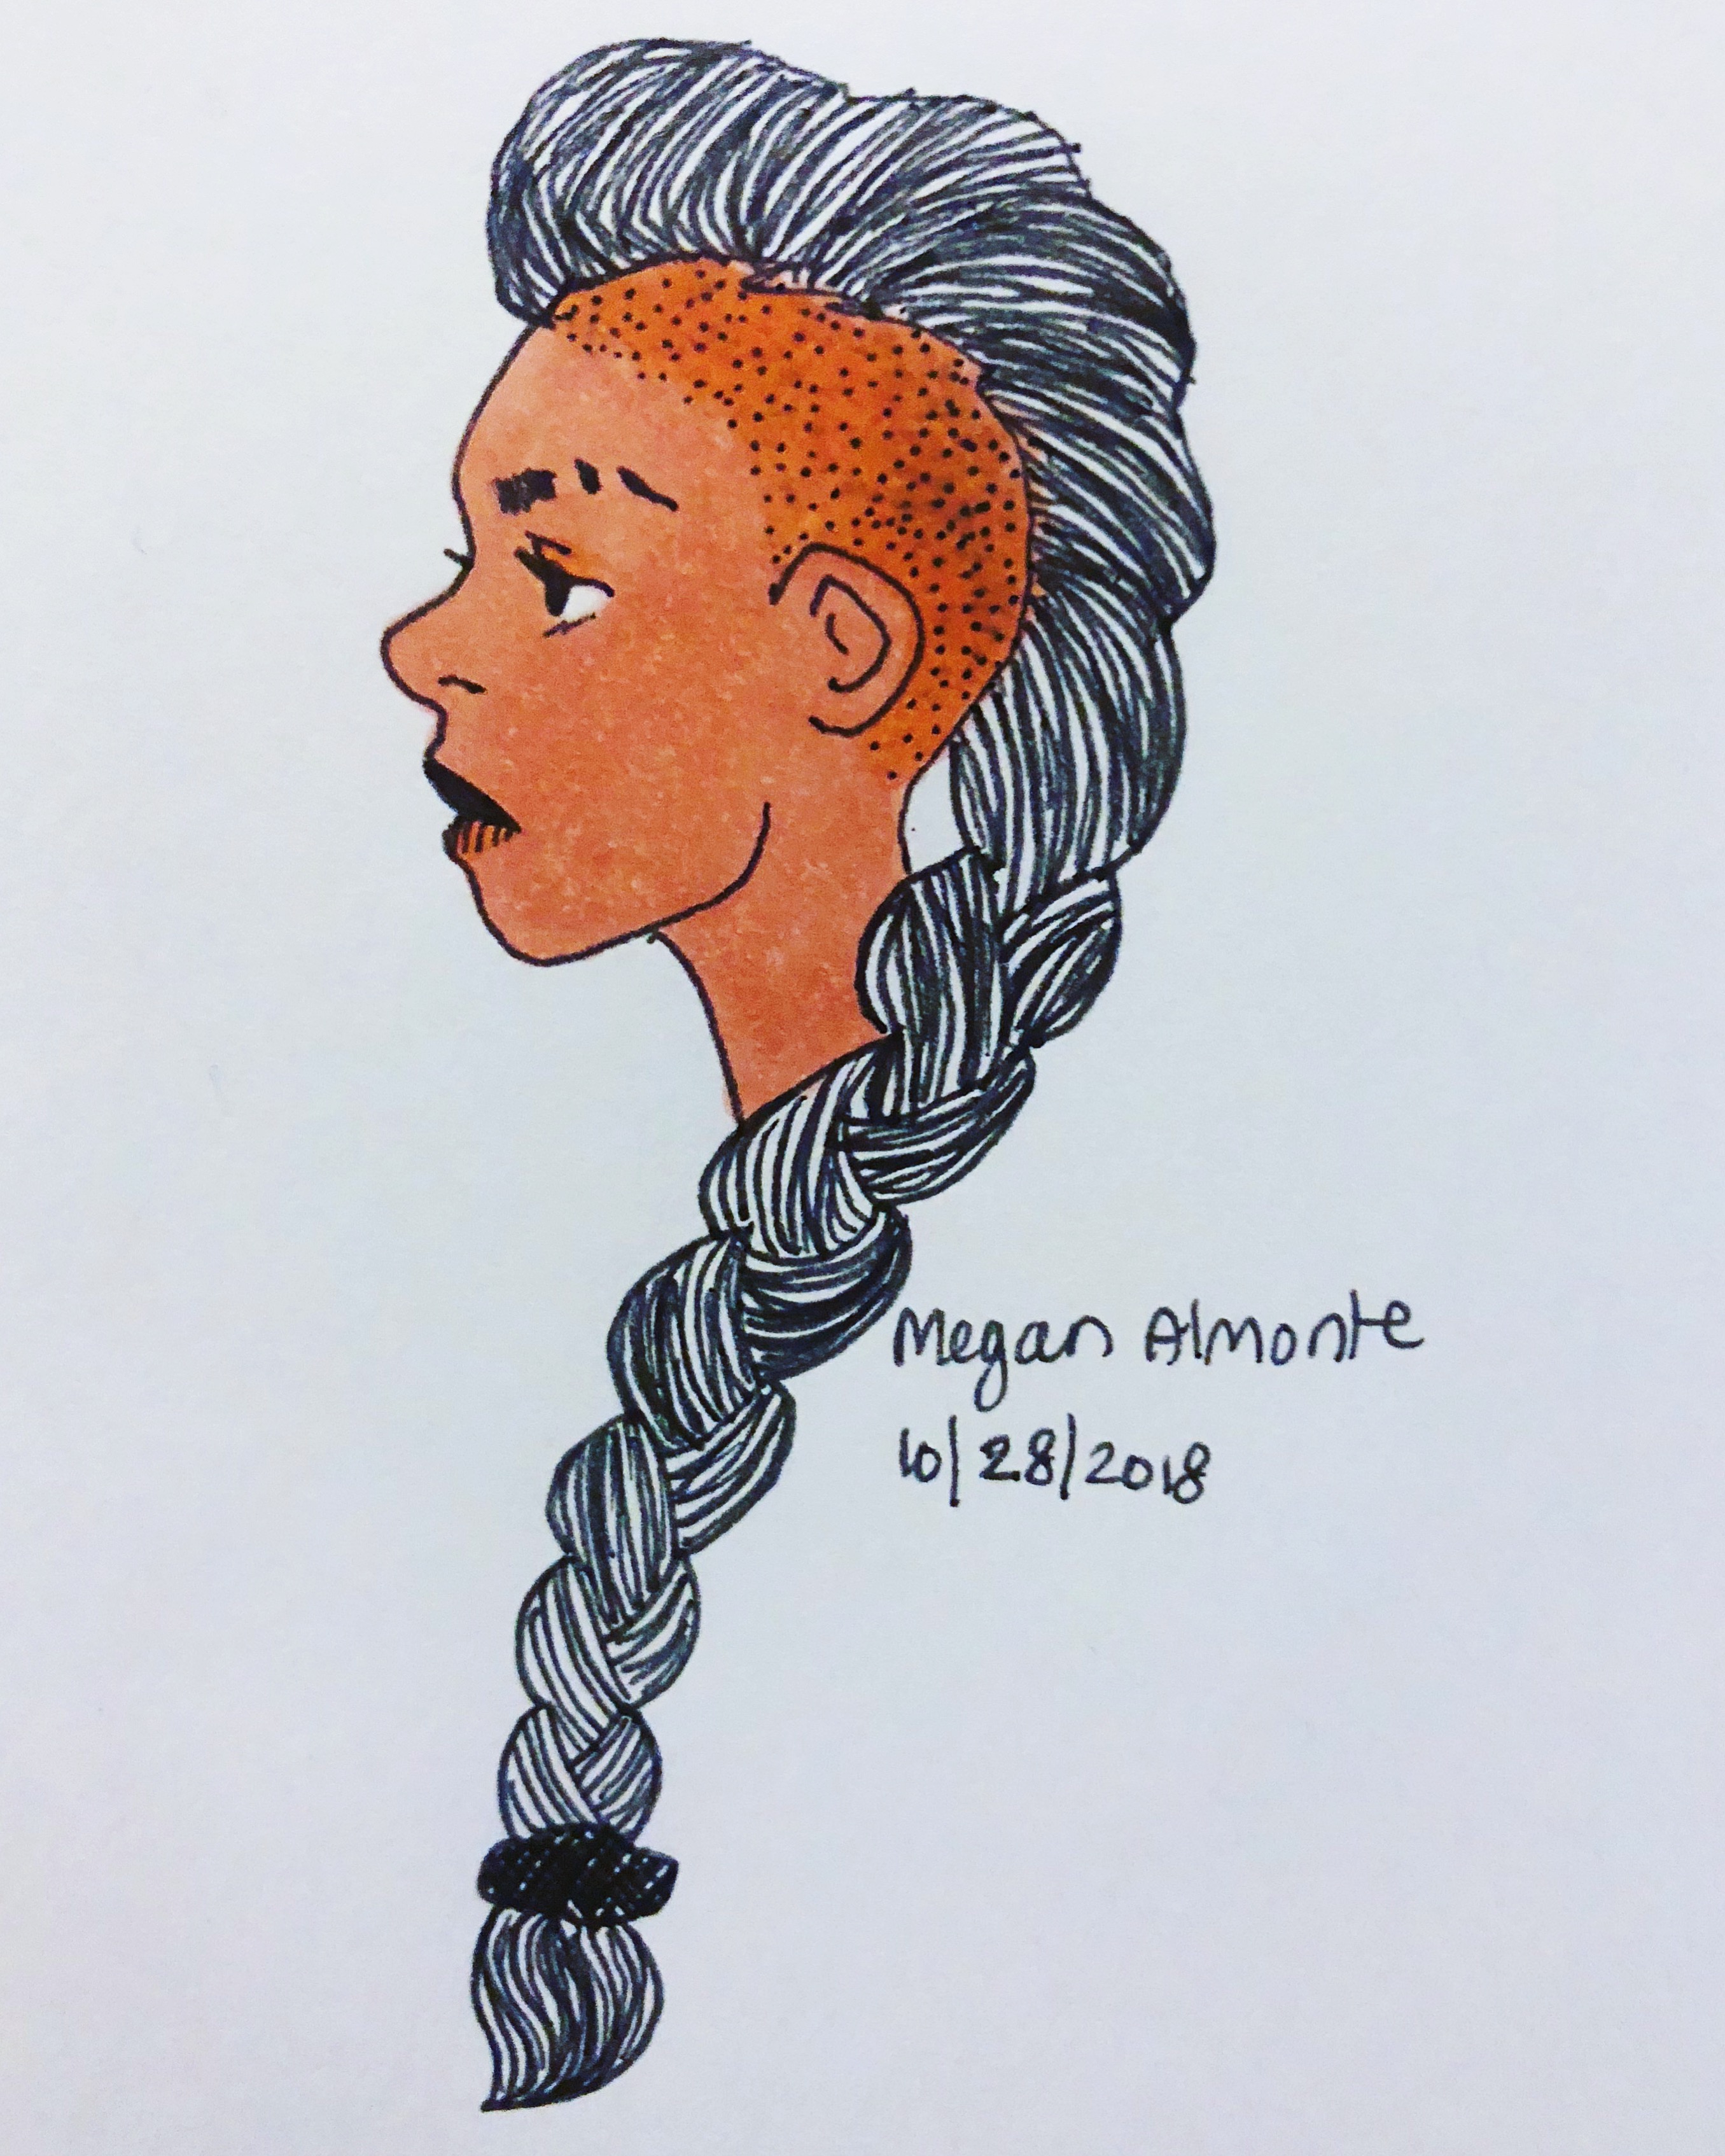 Megan Almonte
10/28/2018